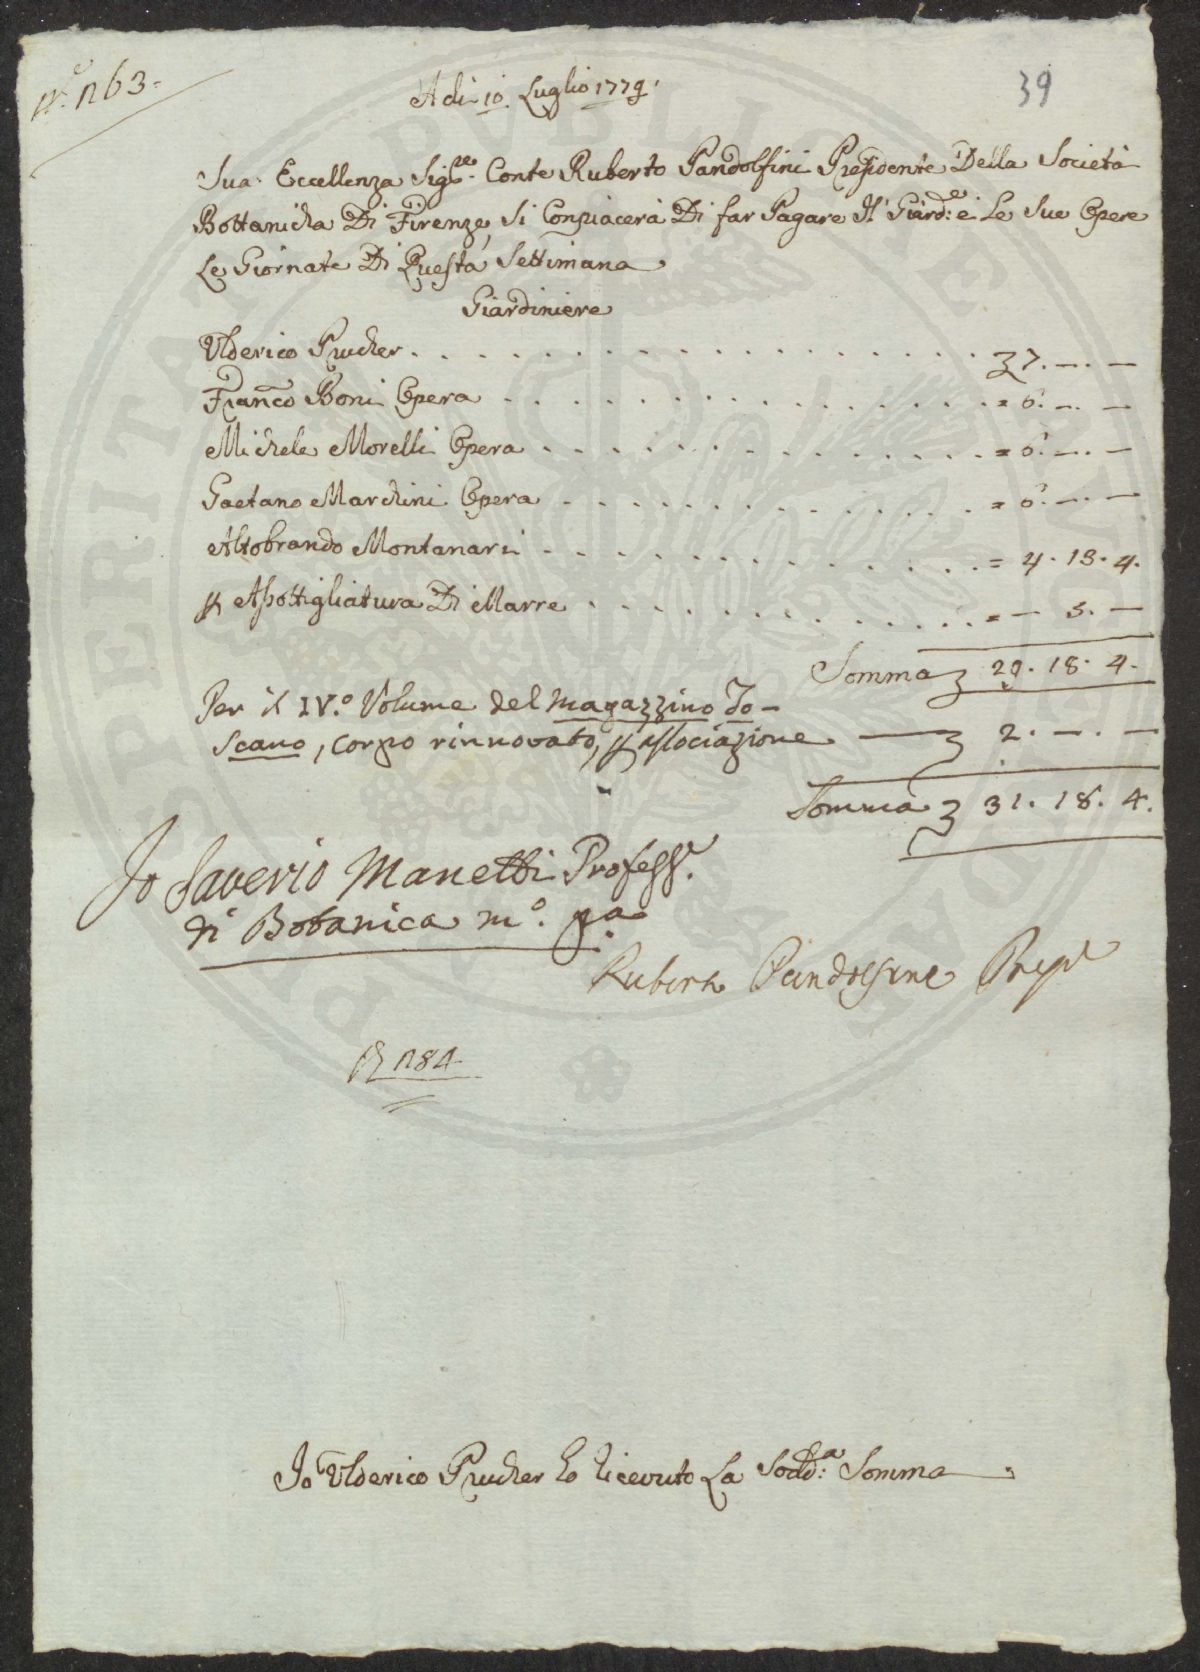 N.º 1763.
39
Adi 10. Luglio 1779.
Sua Eccellenza Sig.re Conte Ruberto Pandolfini Presidente Della Società
Bottanicha Di Firenze, Si Conpiacerà Di far Pagare Il Giard:e e Le Sue Opere
Le Giornate Di Questa Settimana
Giardiniere
Ulderico Prucher . . . 7. —. —
Franco Boni Opera . . . = 6. —. —
Michele Morelli Opera . . . = 6. —. —
Gaetano Marchini Opera . . . = 6. —. —
Altobrando Montanari . . . = 4. 13. 4.
p Apottigliatura Di Marre . . . = — 5. —
Somma 29. 18. 4.
Per il IV.º Volume del Magazzino To-
scano, corpo rinnovato, p associazione — 2. —. —
Somma 31. 18. 4.
Io Saverio Manetti Profess.e
di Botanica m.º pa
Ruberto Pandolfini Presid
1784
Io Ulderico Prucher ho ricevuto La Sodd:a Somma